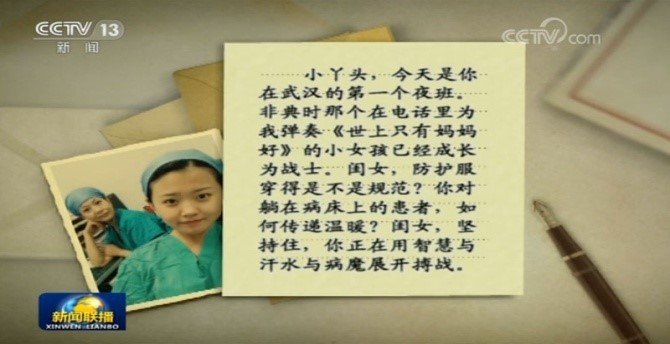 CCTV 13
新闻
CCTV.com
小丫头，今天是你
在武汉的第一个夜班。
非典时那个在电话里为
我弹奏《世上只有妈妈
好》的小女孩已经成长
为战士。闺女，防护服
穿得是不是规范？你对
躺在病床上的患者，如
何传递温暖？闺女，坚
持住，你正在用智慧与
汗水与病魔展开搏战。
新闻联播
XINWEN LIANBO